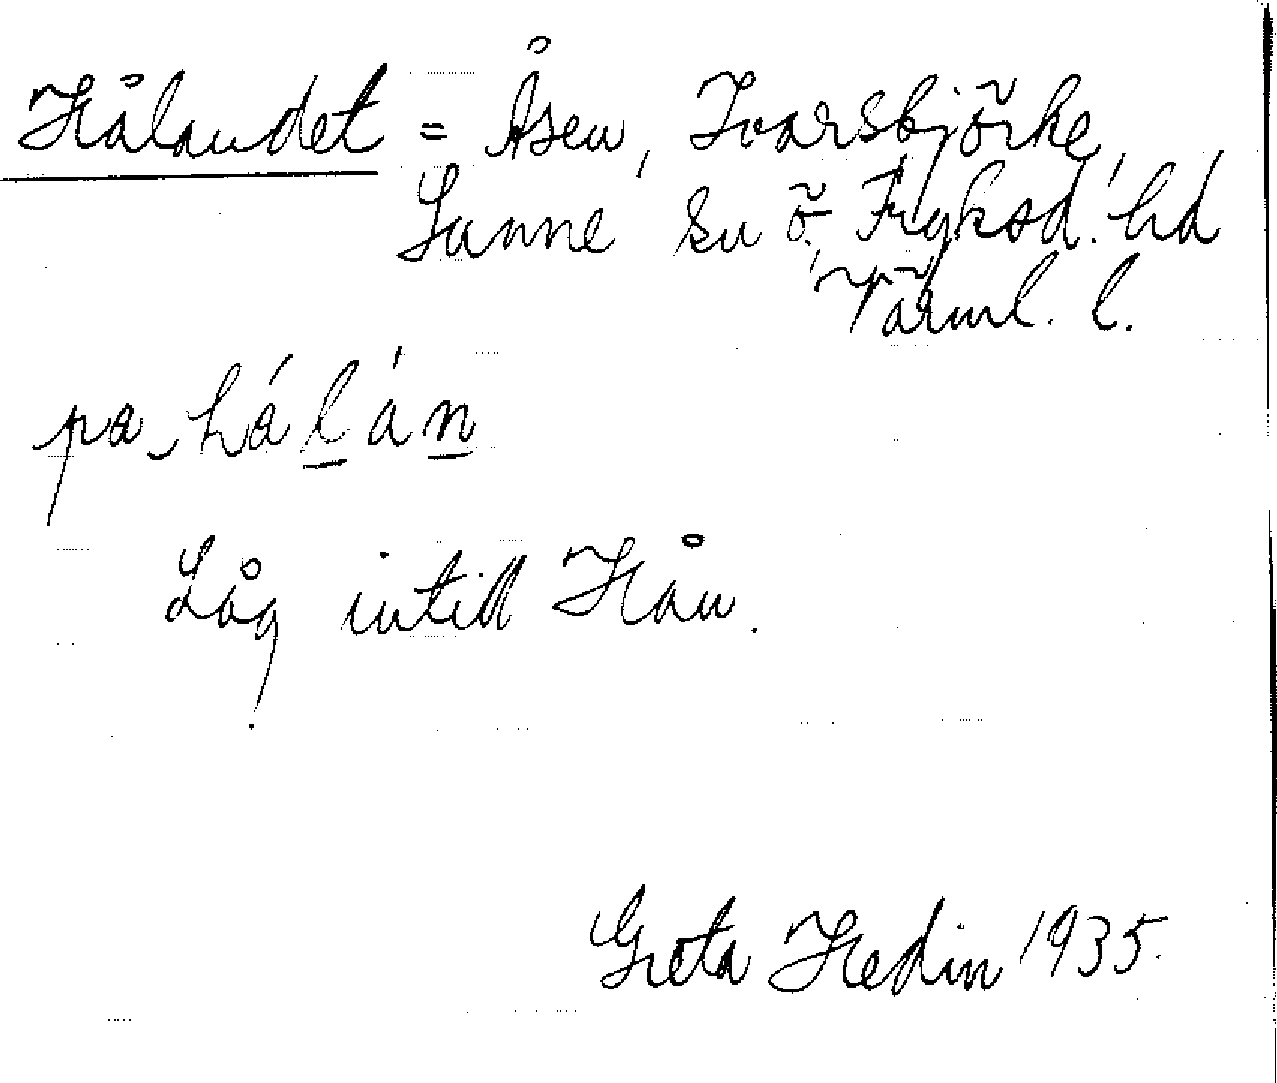 Hålandet = Åsen, Ivarsbjörke,
Sunne sn Ö. Fryksd. hd
Värml. l.
pa hálán
Låg intill Hån.
Greta Hedin 1935.